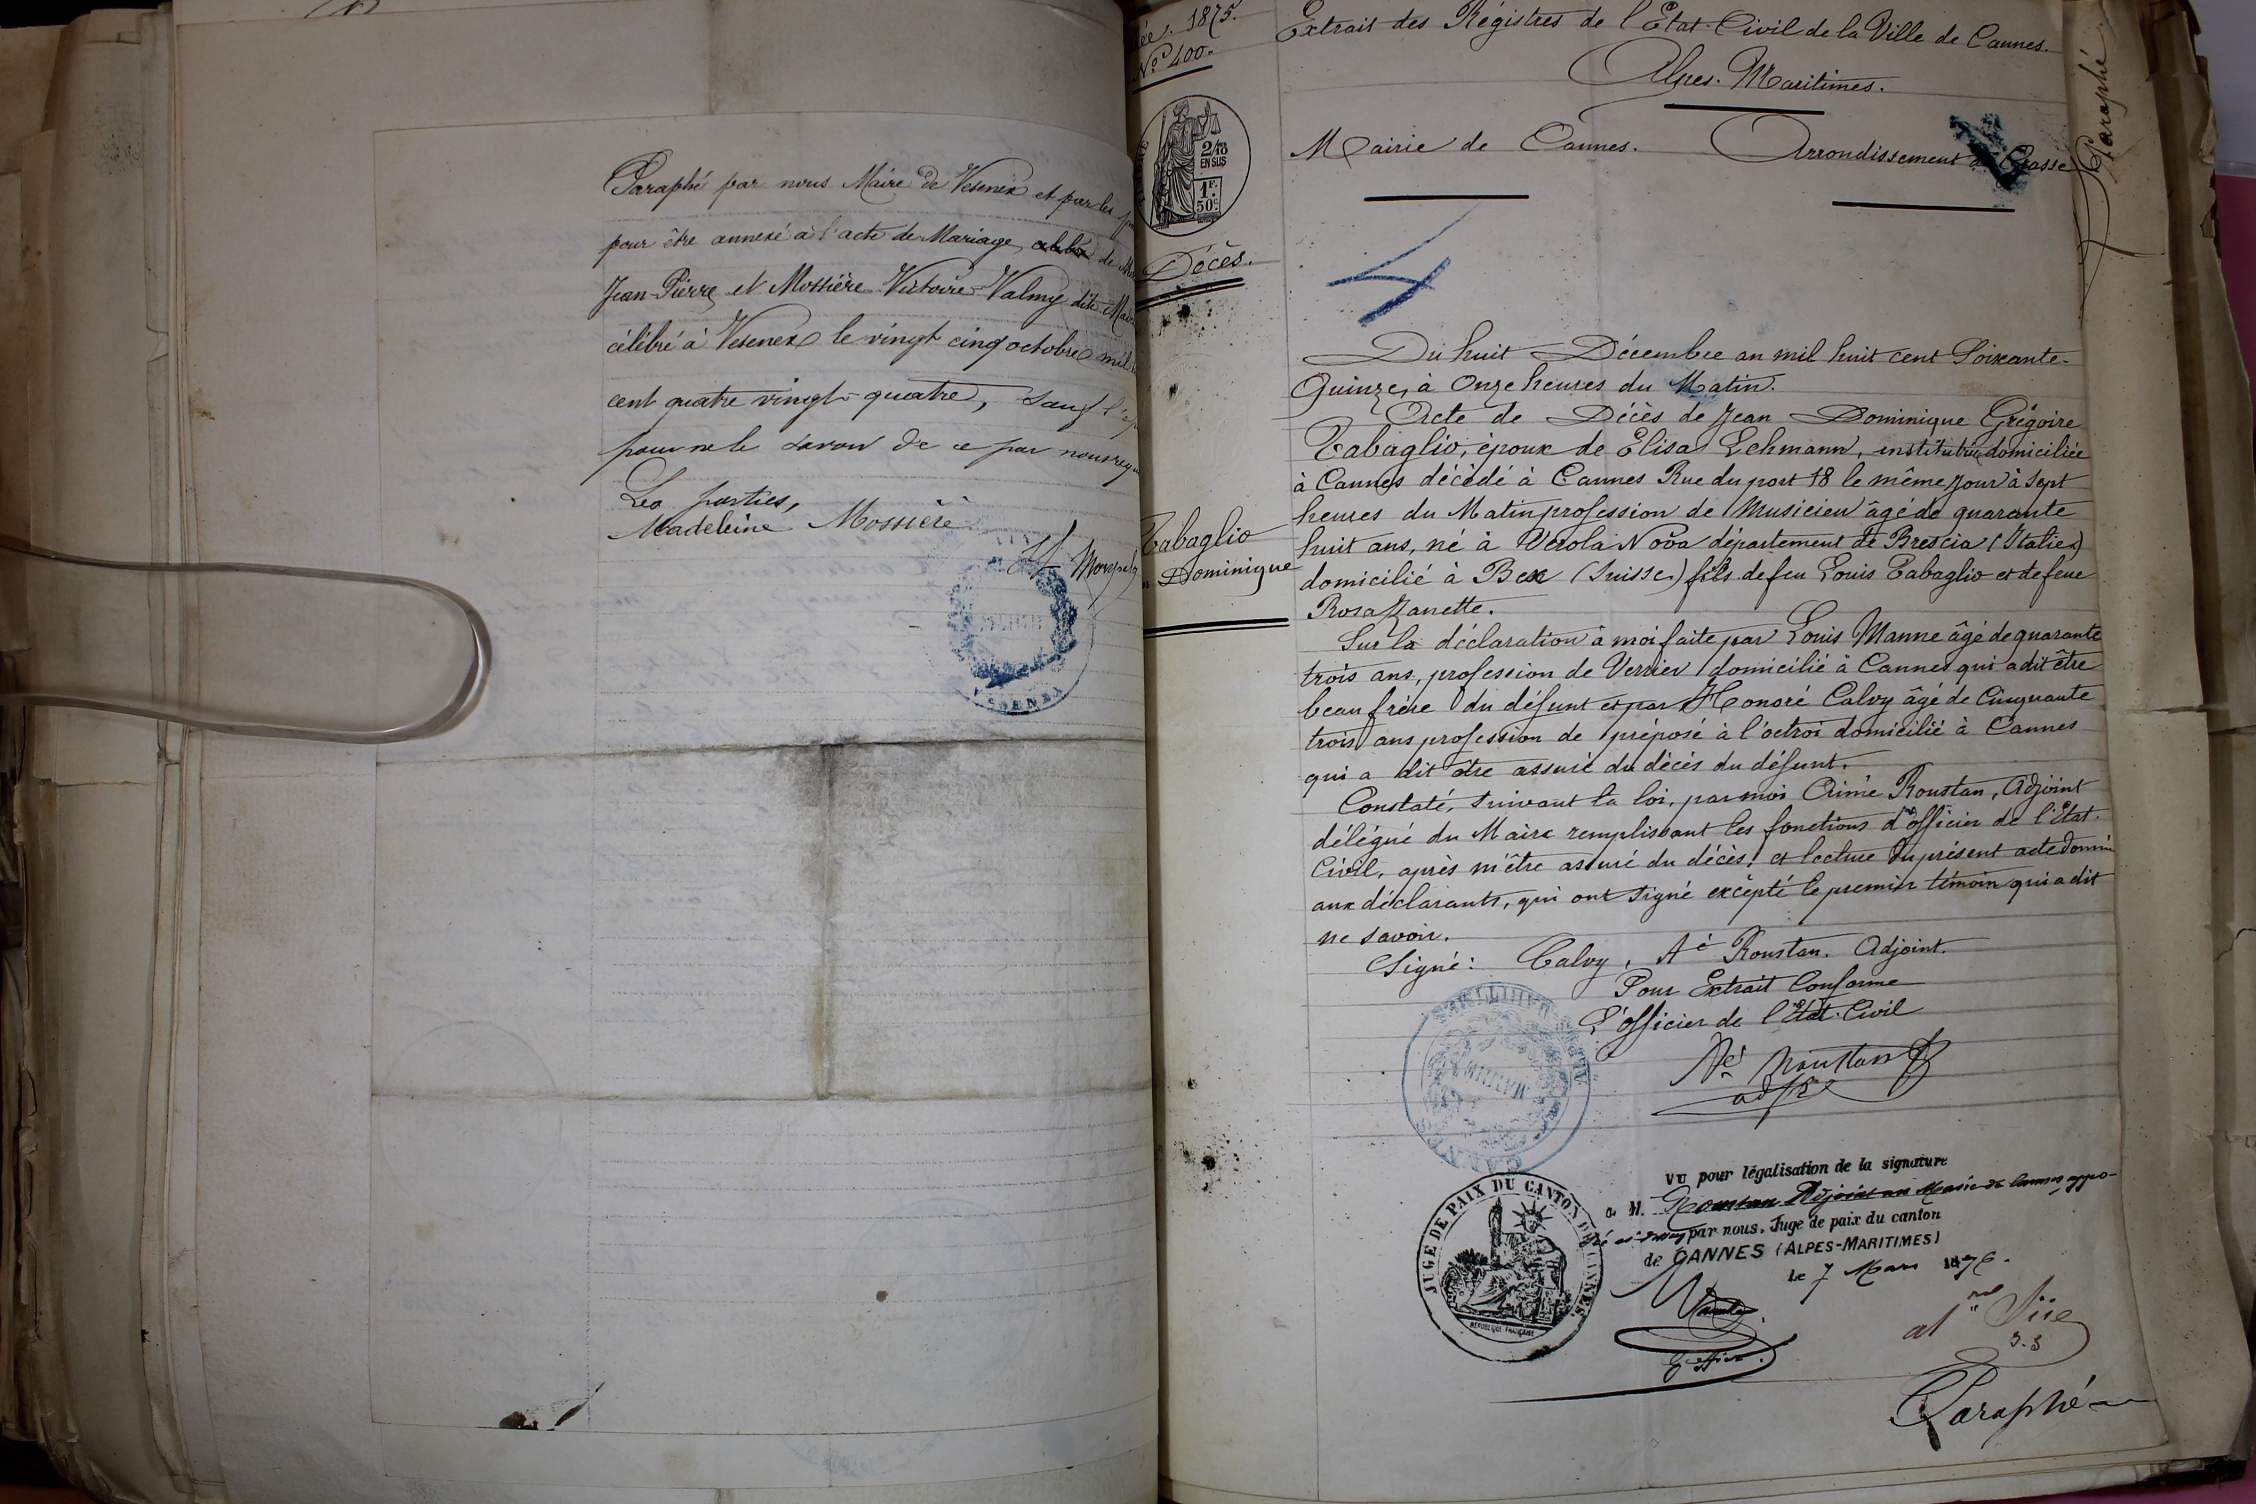 Paraphé par nous Maire de Vesenex et par les
pour être annexé à l'acte de Mariage de
Jean-Pierre et Mossière Victoire Valmy dite
célébré à Vesenex le vingt cinq octobre mil
cent quatre vingt-quatre, sauf
pour ne le savoir de ce par nous
Les parties,
Madeleine Mossière
1875.
N° 400.
2/10
EN SUS
1F.
50c
Décès.
Tabaglio
Dominique
Extrait des Régistres de l'Etat-Civil de la Ville de Cannes.
Alpes-Maritimes.
Mairie de Cannes. Arrondissement de Grasse
Du huit Décembre an mil huit cent Soixante-
Quinze, à Onze heures du Matin.
Acte de Décès de Jean Dominique Grégoire
Tabaglio, époux de Elisa Lehmann, institutrice domiciliée
à Cannes décédé à Cannes Rue du port 18 le même jour à sept
heures du Matin profession de Musicien âgé de quarante
huit ans, né à Verola Nova département de Brescia (Italie)
domicilié à Bex (Suisse) fils de feu Louis Tabaglio et de feue
Rosa Zanette.
Sur la déclaration à moi faite par Louis Manne âgé de quarante
trois ans, profession de Verrier domicilié à Cannes qui a dit être
beau frère du défunt et par Honoré Calvy âgé de Cinquante
trois ans profession de préposé à l'octroi domicilié à Cannes
qui a dit être assuré du décès du défunt.
Constaté, suivant la loi, par moi Aimé Roustan, Adjoint
délégué du Maire remplissant les fonctions d'officier de l'Etat-
Civil, après m'être assuré du décès, et lecture du présent acte donné
aux déclarants, qui ont signé excepté le premier témoin qui a dit
ne savoir.
Signé: Calvy, Aé Roustan. Adjoint.
Pour Extrait Conforme
L'officier de l'Etat-Civil
Aé Roustan
adj
MAIRIE
VU pour légalisation de la signature
de M. Roustan Adjoint au Maire de Cannes appo-
par nous, Juge de paix du canton
de CANNES (ALPES-MARITIMES)
le 7 Mars 1876.
JUGE DE PAIX DU CANTON DE CANNES
RÉPUBLIQUE FRANÇAISE
Paraphé
Paraphé